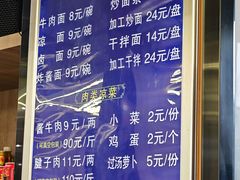 牛肉面 8元/碗
炒面
凉 面 9元/碗
加工炒面 24元/盘
卤 面 9元/碗
干拌面 14元/盘
炸酱面 9元/碗
加工干拌 24元/盘
肉类凉菜
酱牛肉 9元/两
小 菜 2元/份
90元/斤
鸡 蛋 2元/个
腱子肉 11元/两
过汤萝卜 5元/份
110元/斤